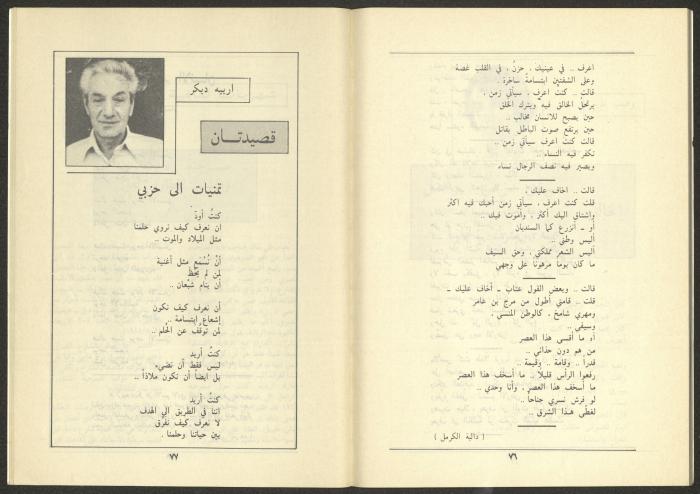 اعرف .. في عينيك ، حزنٌ ، في القلب غصة
وعلى الشفتين ابتسامة ساخرة .
قالت .. كنت اعرف ، سيأتي زمن ،
يرتحل الخالق فيه ويترك الخلق
حين يصبح للانسان مخالب ..
حين يرتفع صوت الباطل يقاتل
قالت كنت اعرف سيأتي زمن ..
تكفر فيه النساء ..
ويصير فيه نصف الرجال نساء
قالت .. اخاف عليك .
قلت كنت اعرف ، سيأتي زمن أحبك فيه اكثر
واشتاق اليك أكثر ، وأموت فيك ..
أو ـ أنزرع كما السنديان
أليس وطني ..
أليس الشعر مملكتي ، وحق السيف
ما كان يوما مرهونا على وجهي
قالت .. وبعض القول عتاب ـ أخاف عليك ـ
قلت .. قامتي أطول من مرج بن عامر
ومهري شامخ ، كالوطن المنسي .
وسيفي ..
أو ما أقسى هذا العصر
من هم دون حذائي ..
قدراً .. وقامة .. وقيمة ..
رفعوا الرأس قليلاً .. ما أسخف هذا العصر
ما أسخف هذا العصر ، وأنا وحدي ..
لو فرش نسري جناحاً ..
لغطى هذا الشرق ..
( دالية الكرمل )
٧٦
ارييه ديكر
قصيدتـــان
تمنيات الى حزبي
كنتُ أودّ
ان نعرف كيف نروي حلمنا
مثل الميلاد والموت ..
أنْ نُسْمَع مثل أغنية
لمن لم يحظَ
أن ينام شبْعان ..
أن نعرف كيف نكون
إشعاع إبتسامة ..
لمن توقّف عن الحلم ..
كنتُ أريد
ليس فقط أن نضيء
بل ايضاً أن نكون ملاذاً ..
كنتُ أريد
اننا في الطريق الى الهدف
لا نعرف كيف نفرّق
بين حياتنا وحلمنا .
٧٧